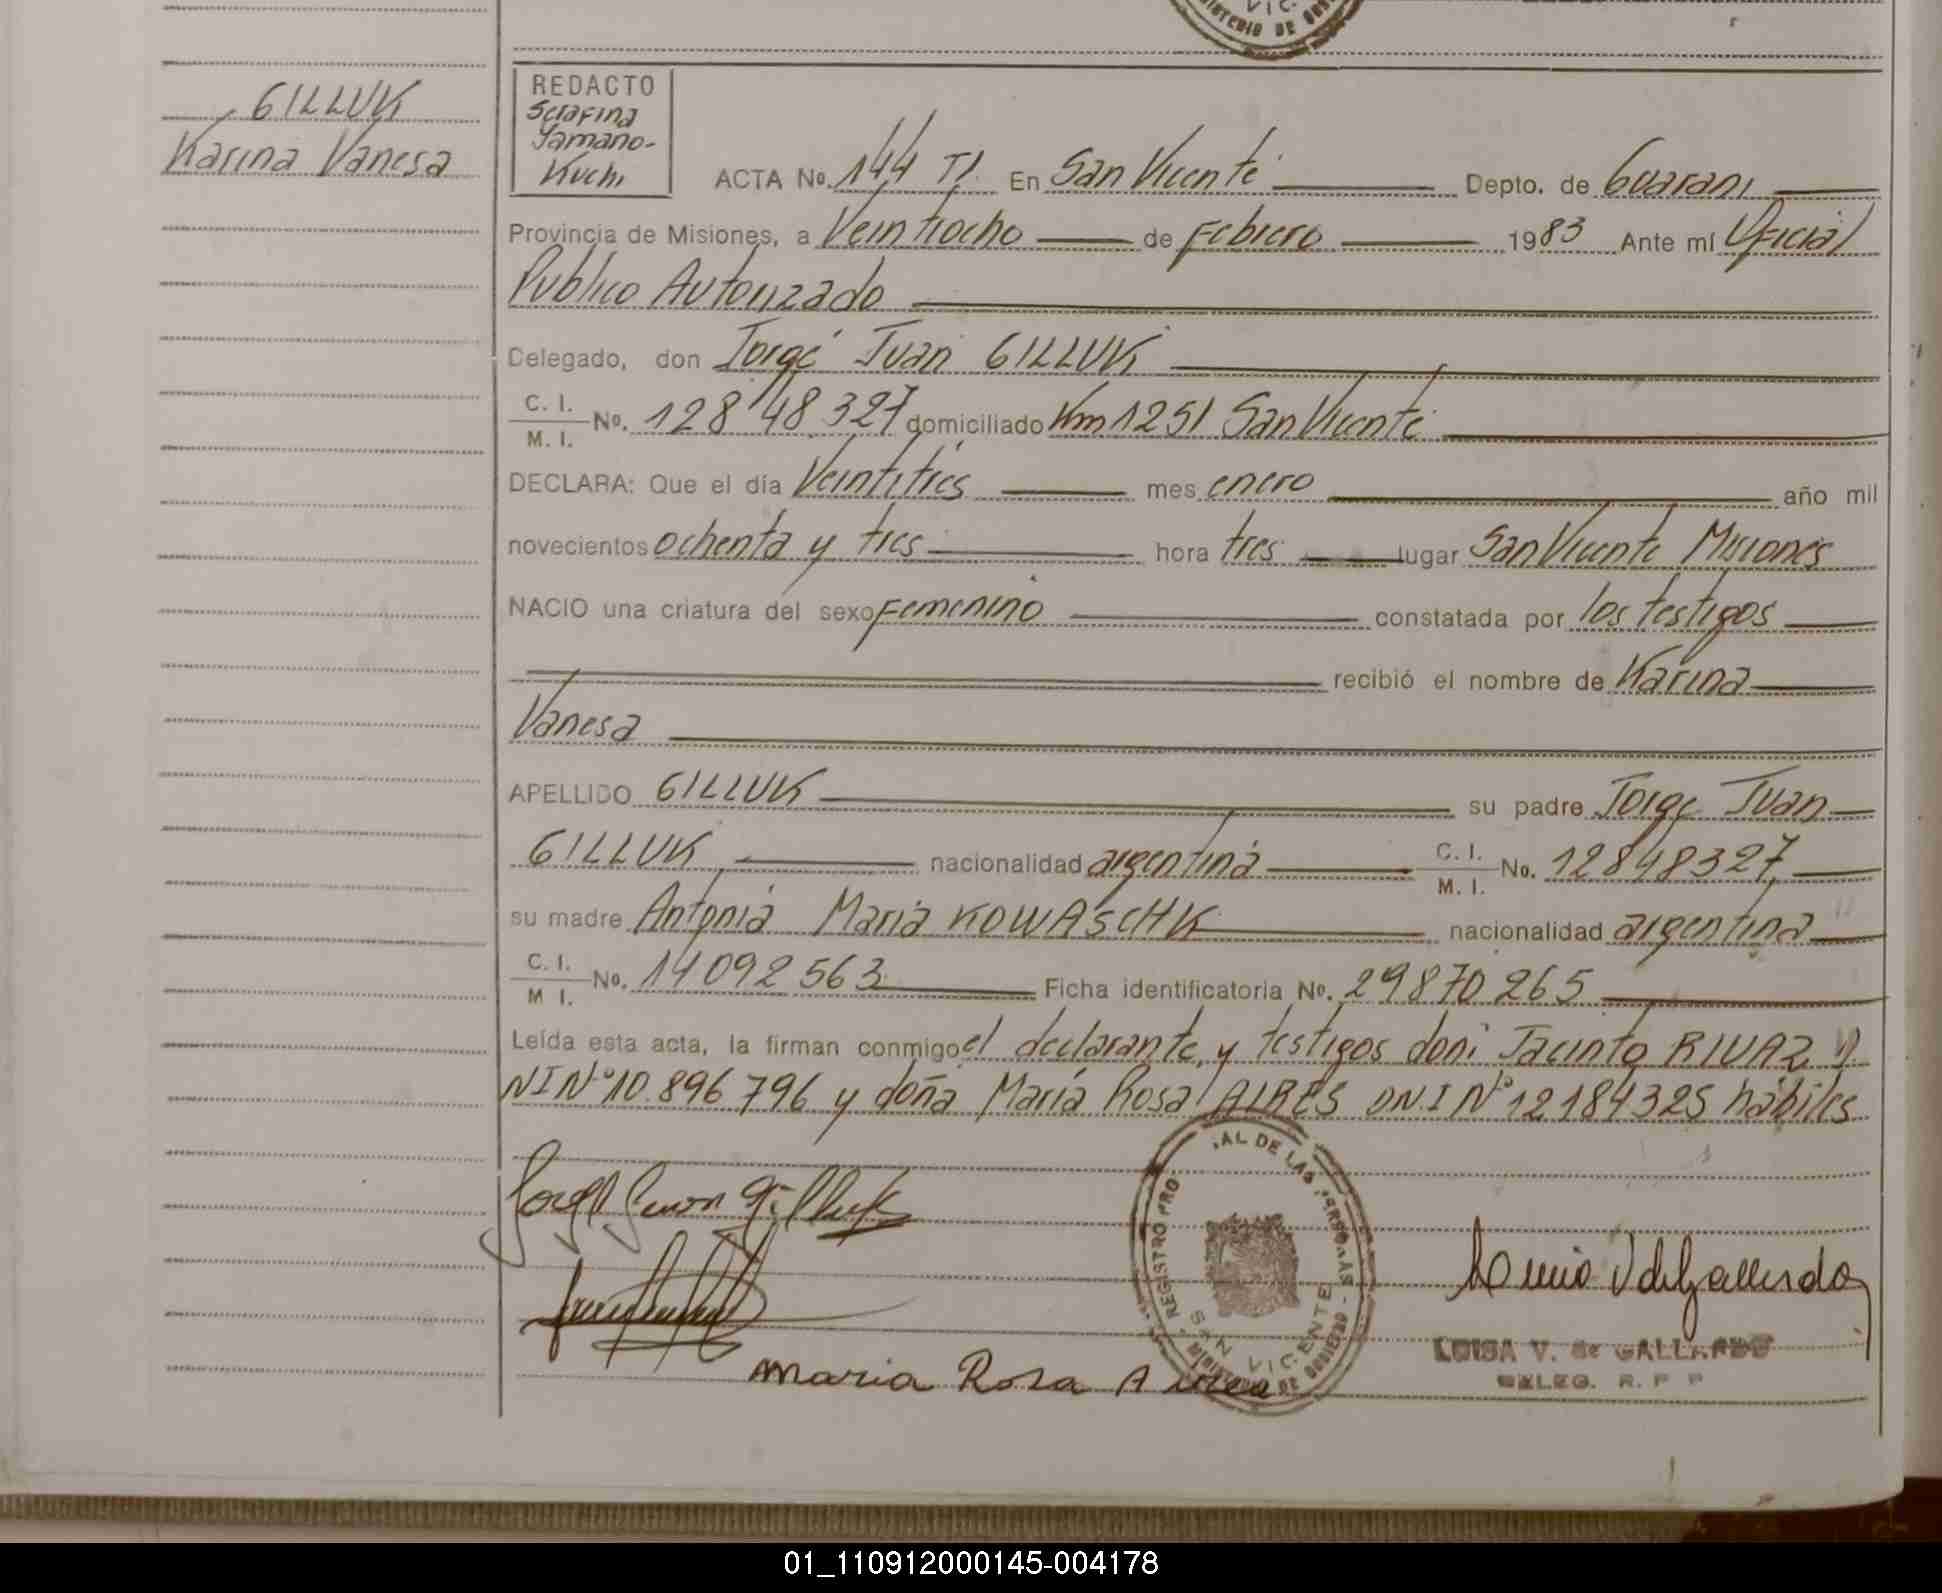 VIC.
MINISTERIO DE GOB
GILLUK
Karina Vanesa
REDACTO
Serafina
Yamano-
Kuchi
ACTA No. 144 TI. En San Vicente Depto. de Guaraní
Provincia de Misiones, a Veintiocho de Febrero 1983 Ante mí Oficial
Público Autorizado
Delegado, don Jorge Juan GILLUK
C. I.
M. I. No. 12848327 domiciliado Km 1251 San Vicente
DECLARA: Que el día Veintitres mes enero año mil
novecientos ochenta y tres hora tres lugar San Vicente Misiones
NACIO una criatura del sexo Femenino constatada por los testigos
recibió el nombre de Karina
Vanesa
APELLIDO GILLUK su padre Jorge Juan
GILLUK nacionalidad argentina C. I. M. I. No. 12848327
su madre Antonia Maria KOWASCHK nacionalidad argentina
C. I.
M I. No. 14092563 Ficha identificatoria No. 29870265
Leída esta acta, la firman conmigo el declarante, y testigos don: Jacinto RIVAZ D
NI Nº 10.896796 y doña María Rosa AIRES DNI Nº 12184325 hábiles
Jorge Juan Gilluk
REGISTRO PRO AL DE LAS PERSONAS
SAN VICENTE
MINISTERIO DE GOBIERNO
V de Gallardo
Maria Rosa Aires
LUISA V. de GALLARDO
DELEG. R. P P
01_110912000145-004178